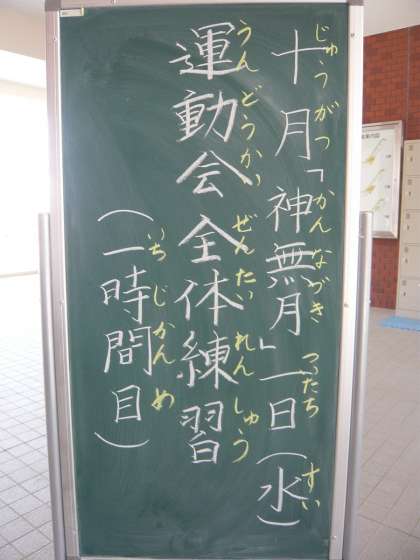 十月「神無月」一日(水)
じゅうがつ かんなづき ついたち すい
運動会全体練習
うんどうかい ぜんたい れんしゅう
(一時間目)
いち じかんめ